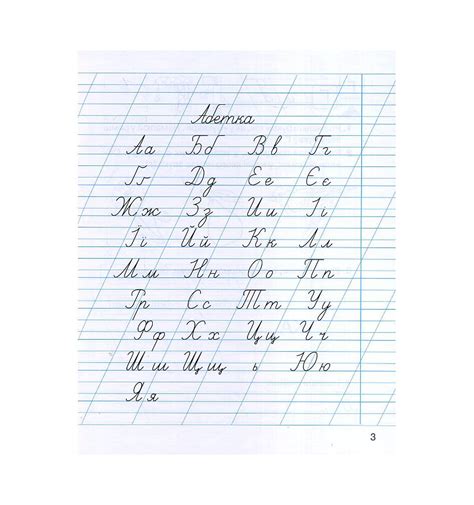 Абетка
Аа Бб Вв Гг
Ґґ Дд Ее Єє
Жж Зз Ии Іі
Її Йй Кк Лл
Мм Нн Оо Пп
Рр Сс Тт Уу
Фф Хх Цц Чч
Шш Щщ ь Юю
Яя
3